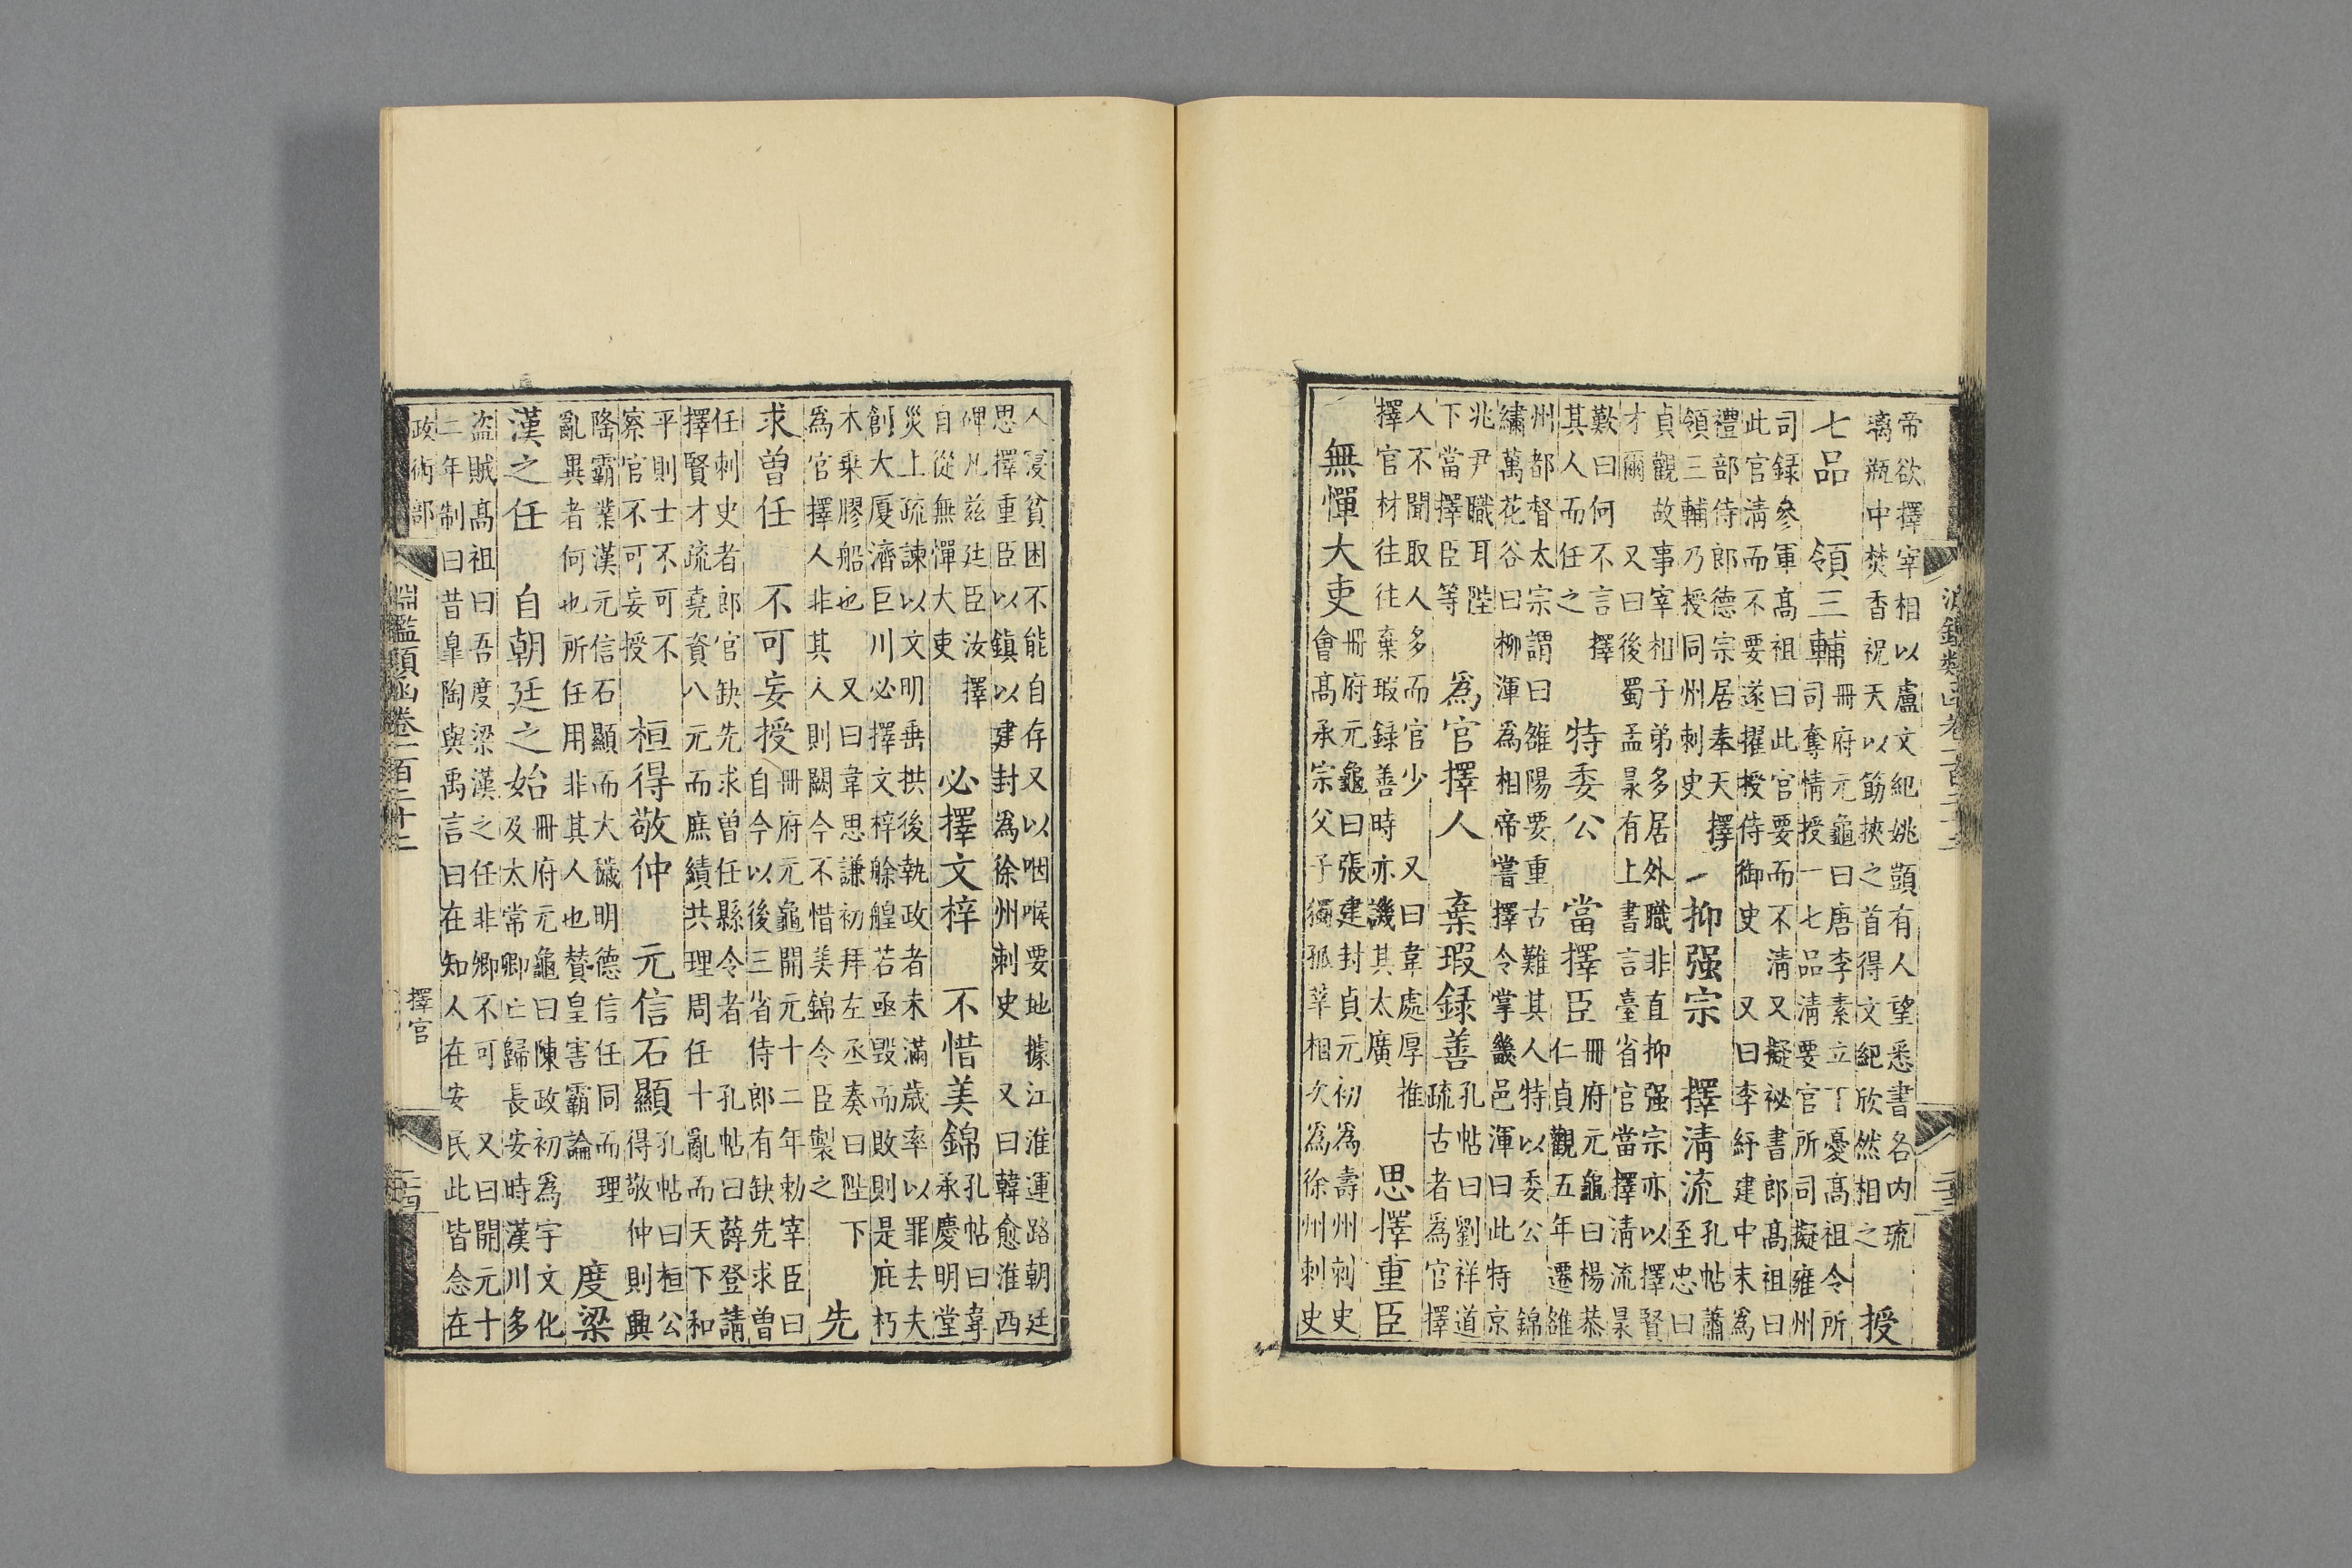 淵鑑類函卷一百二十二
帝欲擇宰相以盧文紀姚顗有人望悉書各内琉
璃瓶中焚香祝天以筯挾之首得文紀欣然相之
授
七品　領三輔
冊府元龜曰唐李素立丁憂高祖令所
司奪情授一七品清要官所司擬雍州
司録參軍高祖曰此官要而不清又擬祕書郎高祖曰
此官清而不要遂擢授侍御史　又曰李紓建中末為
禮部侍郎德宗居奉天擇
領三輔乃授同州刺史
一抑强宗　擇清流
孔帖蕭
至忠曰
貞觀故事宰相子弟多居外職非直抑强宗亦以擇賢
才爾　又曰後蜀孟昶有上書言臺省官當擇清流昶
歎曰何不言擇
其人而任之
特委公　當擇臣
冊府元龜曰楊恭
仁貞觀五年遷雒
州都督太宗謂曰雒陽要重古難其人特以委公　錦
繡萬花谷曰柳渾為相帝嘗擇令掌畿邑渾曰此特京
兆尹職耳陛
下當擇臣等
為官擇人　棄瑕録善
孔帖曰劉祥道
疏古者為官擇
人不聞取人多而官少　又曰韋處厚推
擇官材往往棄瑕録善時亦譏其太廣
思擇重臣
無憚大吏
冊府元龜曰張建封貞元初為壽州刺史
會高承宗父子獨孤莘相次為徐州刺史
人寖貧困不能自存又以咽喉要地據江淮運路朝廷
思擇重臣以鎮以建封為徐州刺史　又曰韓愈淮西
碑凡兹廷臣汝擇
自從無憚大吏
必擇文梓　不惜美錦
孔帖曰韋
承慶明堂
災上疏諫以文明垂拱後執政者未滿歲率以罪去夫
創大厦濟巨川必擇文梓艅艎若亟毀而敗則是庇朽
木乘膠船也　又曰韋思謙初拜左丞奏曰陛下
為官擇人非其人則闕今不惜美錦令臣製之
先
求曽任　不可妄授
冊府元龜開元十二年勅宰臣曰
自今以後三省侍郎有缺先求曽
任刺史者郎官缺先求曽任縣令者　孔帖曰薛登請
擇賢才疏堯資八元而庶績共理周任十亂而天下和
平則士不可不
察官不可妄授
桓得敬仲　元信石顯
孔帖曰桓公
得敬仲則興
隆霸業漢元信石顯而大穢明德信任同而理
亂異者何也所任用非其人也贊皇害霸論
度梁
漢之任　自朝廷之始
冊府元龜曰陳政初為宇文化
及太常卿亡歸長安時漢川多
盗賊高祖曰吾度梁漢之任非卿不可　又曰開元十
二年制曰昔臯陶與禹言曰在知人在安民此皆念在
政術部　淵鑑類函卷一百二十二　擇官　二四